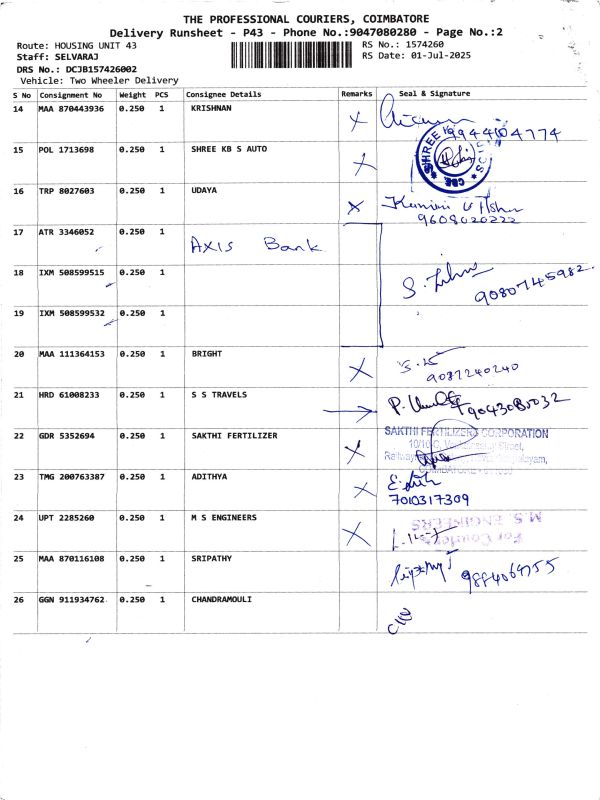 THE PROFESSIONAL COURIERS, COIMBATORE
Delivery Runsheet - P43 - Phone No.:9047080280 - Page No.:2
Route: HOUSING UNIT 43 RS No.: 1574260
Staff: SELVARAJ RS Date: 01-Jul-2025
DRS No.: DCJB157426002
Vehicle: Two Wheeler Delivery
S No Consignment No Weight PCS Consignee Details Remarks Seal & Signature
14 MAA 870443936 0.250 1 KRISHNAN X
9944104774
15 POL 1713698 0.250 1 SHREE KB S AUTO X SHREE CBE
16 TRP 8027603 0.250 1 UDAYA X
9608020222
17 ATR 3346052 0.250 1
AXIS Bank
18 IXM 508599515 0.250 1
9080745982
19 IXM 508599532 0.250 1
20 MAA 111364153 0.250 1 BRIGHT X
9087240240
21 HRD 61008233 0.250 1 S S TRAVELS
22 GDR 5352694 0.250 1 SAKTHI FERTILIZER X SAKTHI FERTILIZERS CORPORATION
Street,
COIMBATORE
23 TMG 200763387 0.250 1 ADITHYA X
7010317309
24 UPT 2285260 0.250 1 M S ENGINEERS X M.S. ENGINEERS
For Courier
25 MAA 870116108 0.250 1 SRIPATHY
26 GGN 911934762 0.250 1 CHANDRAMOULI